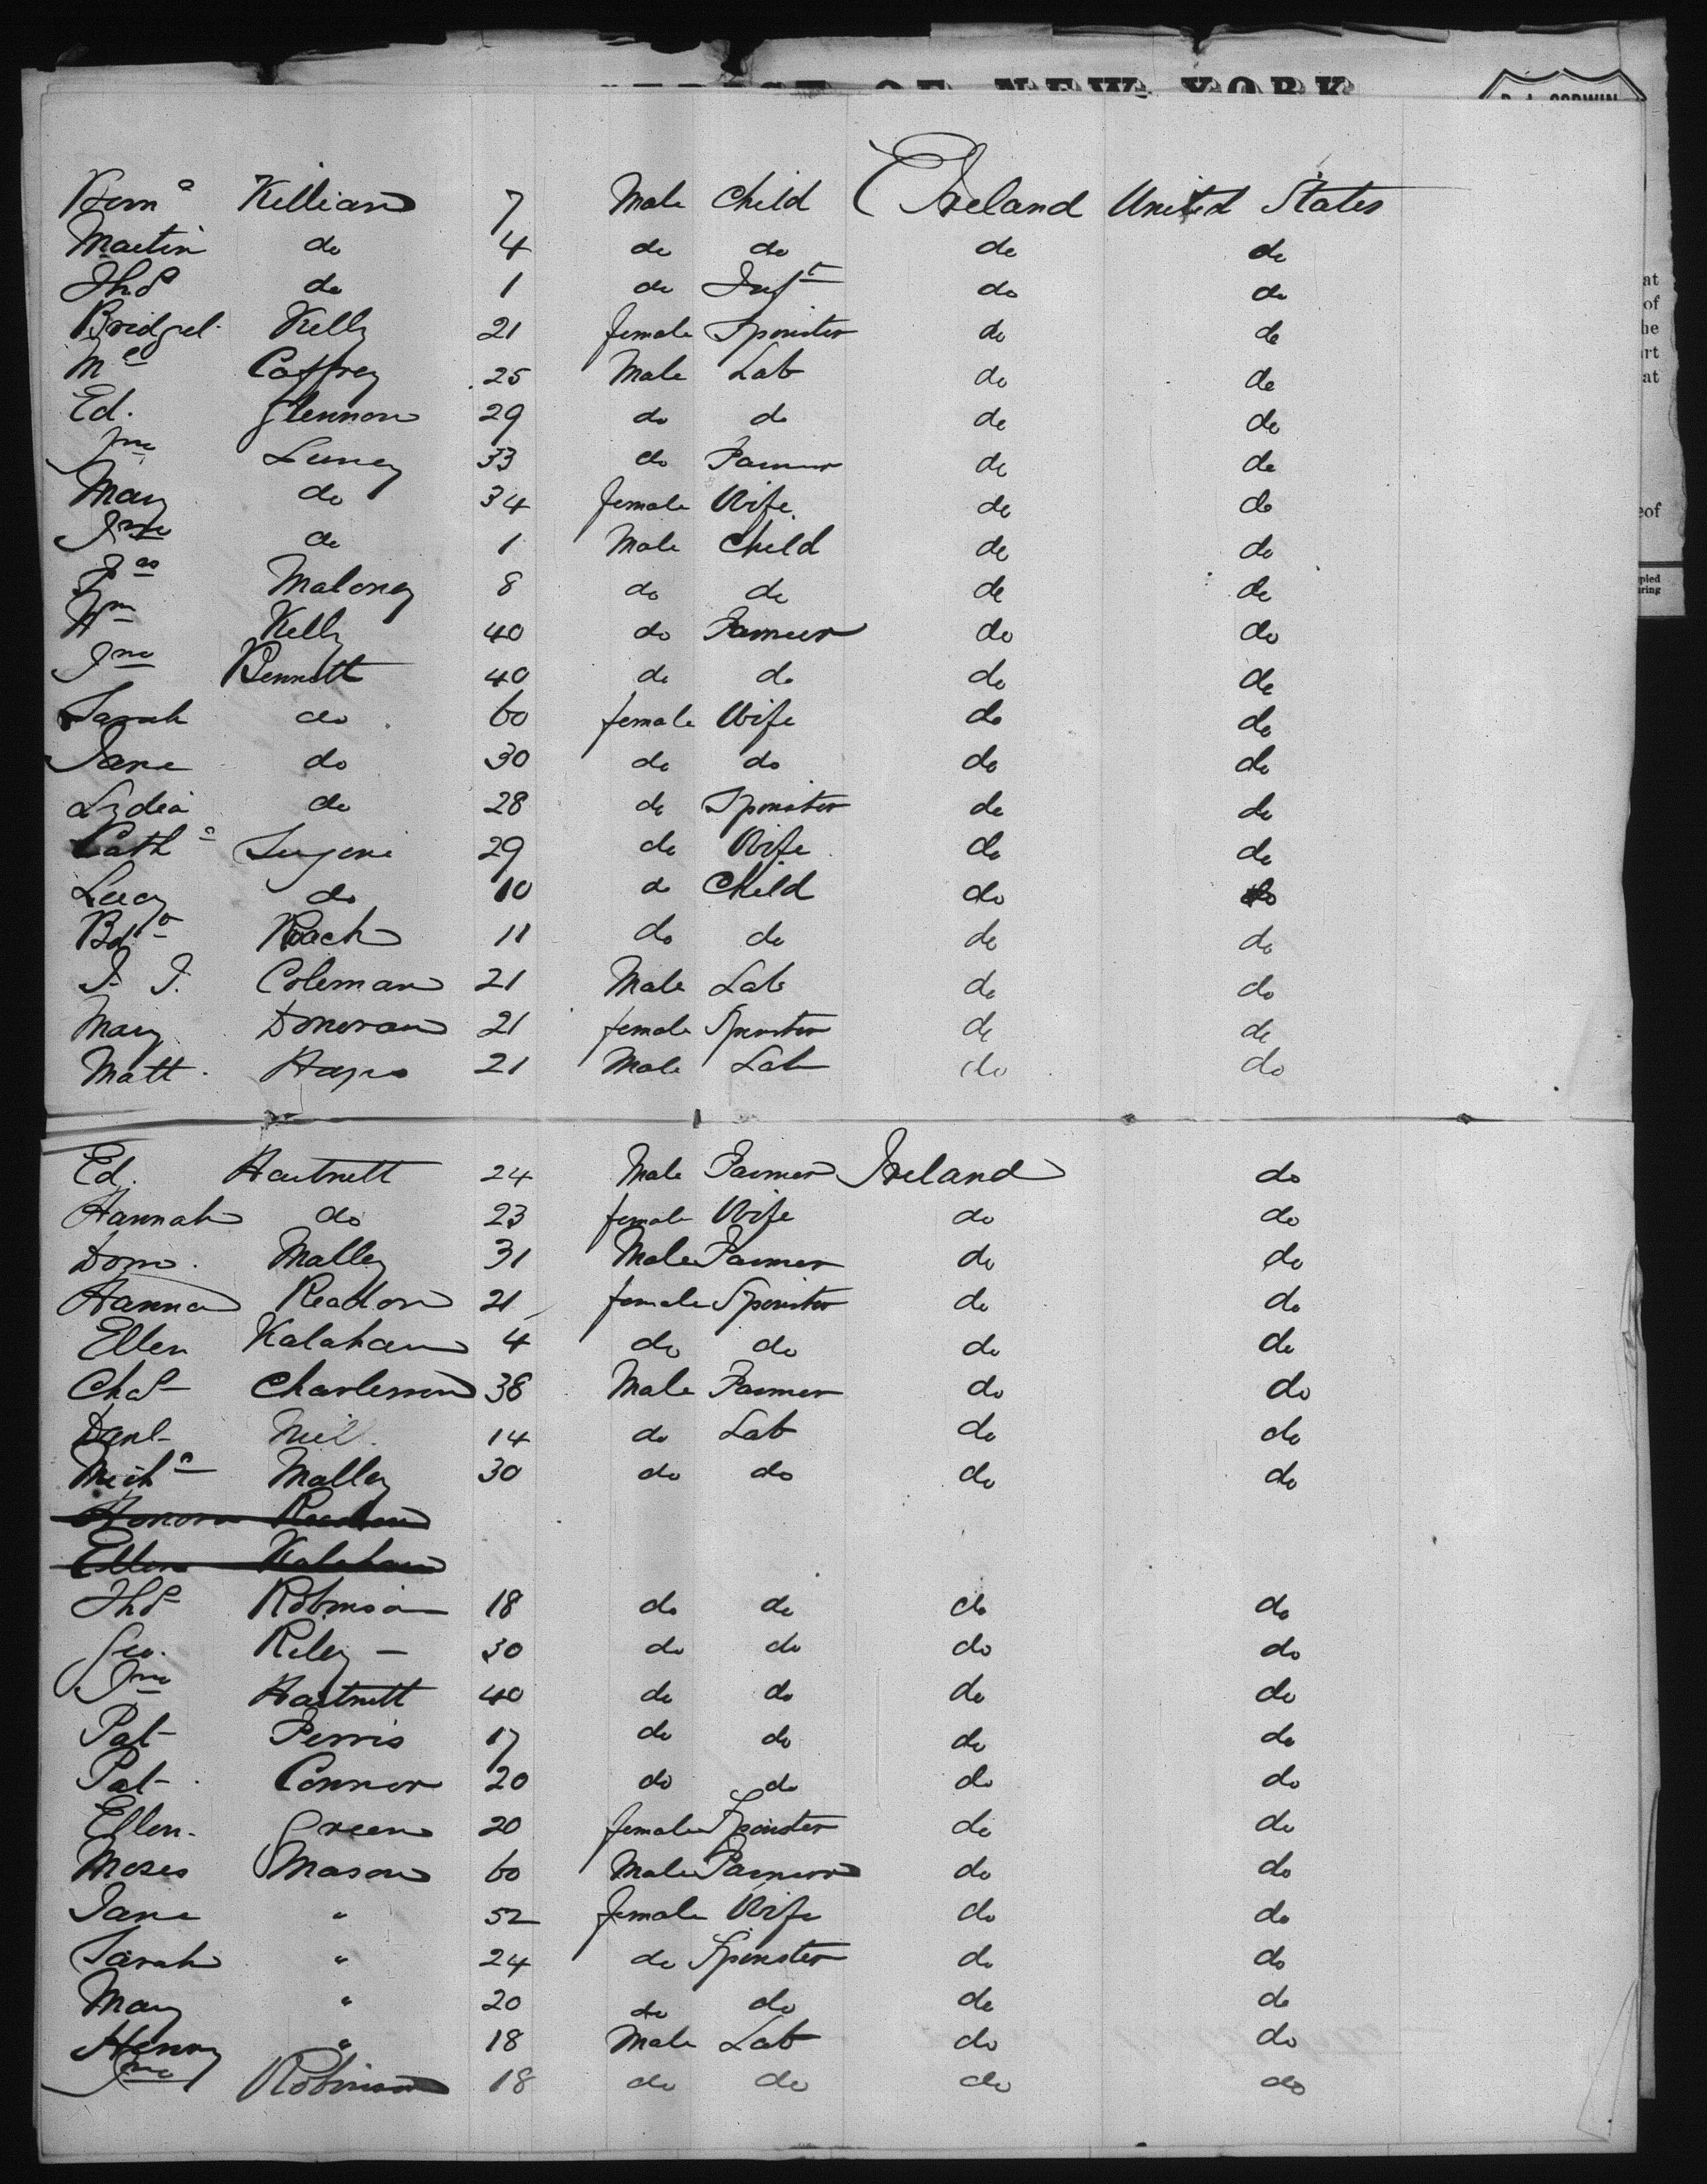 OF NEW YORK
Bern^d Killian 7 Male Child Ireland United States
Martin do 4 do do do do
Tho^s do 1 do Inf^t do do
Bridget Kelly 21 female Spinster do do
M^c Caffrey 25 Male Lab do do
Ed. Glennon 29 do do do do
Jno Luney 33 do Farmer do do
Mary do 34 female Wife do do
Jno do 1 Male Child do do
Jas Maloney 8 do do do do
Wm Kelly 40 do Farmer do do
Jno Bennett 40 do do do do
Sarah do 60 female Wife do do
Jane do 30 do do do do
Lydia do 28 do Spinster do do
Cath^e 29 do Wife do do
Lucy do 10 do Child do do
Bd^t Roach 11 do do do do
J. J. Coleman 21 Male Lab do do
Mary Donovan 21 female Spinster do do
Matt. Hayes 21 Male Lab do do
Ed. Hartnett 24 Male Farmer Ireland do
Hannah do 23 female Wife do do
Dom. Malley 31 Male Farmer do do
Hanna Readon 21 female Spinster do do
Ellen Kalahan 4 do do do do
Cha^s Charleson 38 Male Farmer do do
Danl Neil 14 do Lab do do
Mich^l Malley 30 do do do do
Honora Readon
Ellen Kalahan
Tho^s Robinson 18 do do do do
Geo. Riley — 30 do do do do
Jno Hartnett 40 do do do do
Pat Ferris 17 do do do do
Pat. Connor 20 do do do do
Ellen. Green 20 female Spinster do do
Moses Mason 60 Male Farmer do do
Jane " 52 female Wife do do
Sarah " 24 do Spinster do do
Mary " 20 do do do do
Henry " 18 Male Lab do do
Jno Robinson 18 do do do do